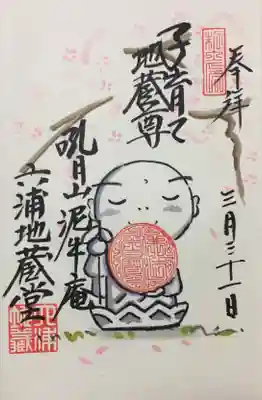 奉拝
三月三十一日
子育て
地蔵尊
吼月山泥牛庵
六浦地蔵堂